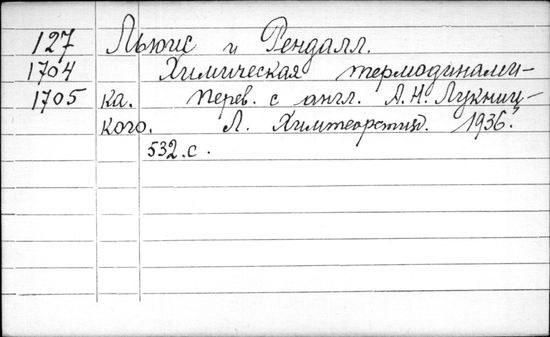 127 Льюис и Рендалл.
1704 Химическая термодинами-
1705 ка. Перев. с англ. А.Н. Лукниц-
кого. Л. Химтеоретиздат. 1936.
532.с.